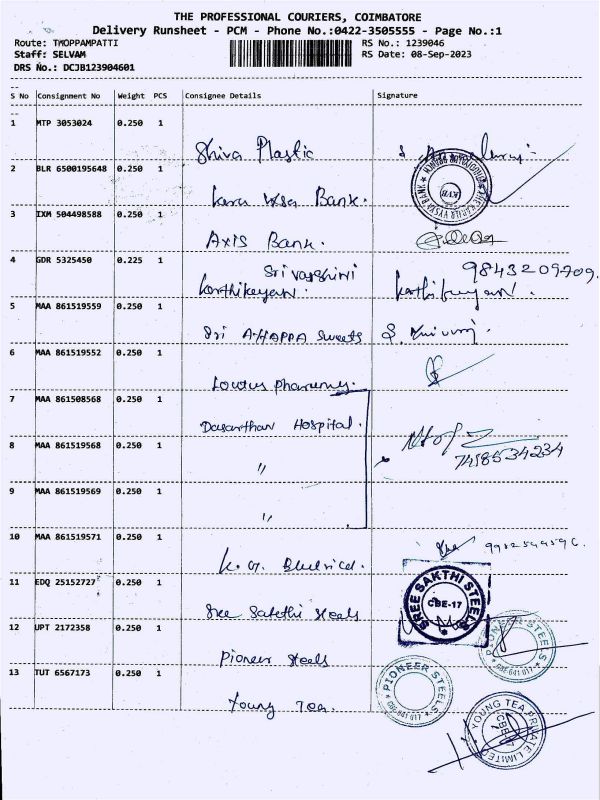 THE PROFESSIONAL COURIERS, COIMBATORE
Delivery Runsheet - PCM - Phone No.:0422-3505555 - Page No.:1
Route: TMOPPAMPATTI RS No.: 1239046
Staff: SELVAM RS Date: 08-Sep-2023
DRS No.: DCJB123904601
S No Consignment No Weight PCS Consignee Details Signature
1 MTP 3053024 0.250 1
Shiva Plastic
2 BLR 6500195648 0.250 1
Karur Vysa Bank.
KVB
3 IXM 504498588 0.250 1
Axis Bank.
4 GDR 5325450 0.225 1
Sri varshini 9843209709.
Karthikeyan. Karthikeyan.
5 MAA 861519559 0.250 1
Sri A-HAPPA Sweets
6 MAA 861519552 0.250 1
Lowtus pharumy.
7 MAA 861508568 0.250 1
Dasarthan Hospital.
8 MAA 861519568 0.250 1
" 7498534234
9 MAA 861519569 0.250 1
"
10 MAA 861519571 0.250 1
K. G. Electrical.
11 EDQ 25152727 0.250 1
Sree Sakthi Steels
SREE SAKTHI STEELS
CBE-17
12 UPT 2172358 0.250 1
Pioneer Steels
PIONEER STEELS
CBE-641 017
13 TUT 6567173 0.250 1
Young Tea.
PIONEER STEELS
CBE-641 017
YOUNG TEA PRIVATE LIMITED